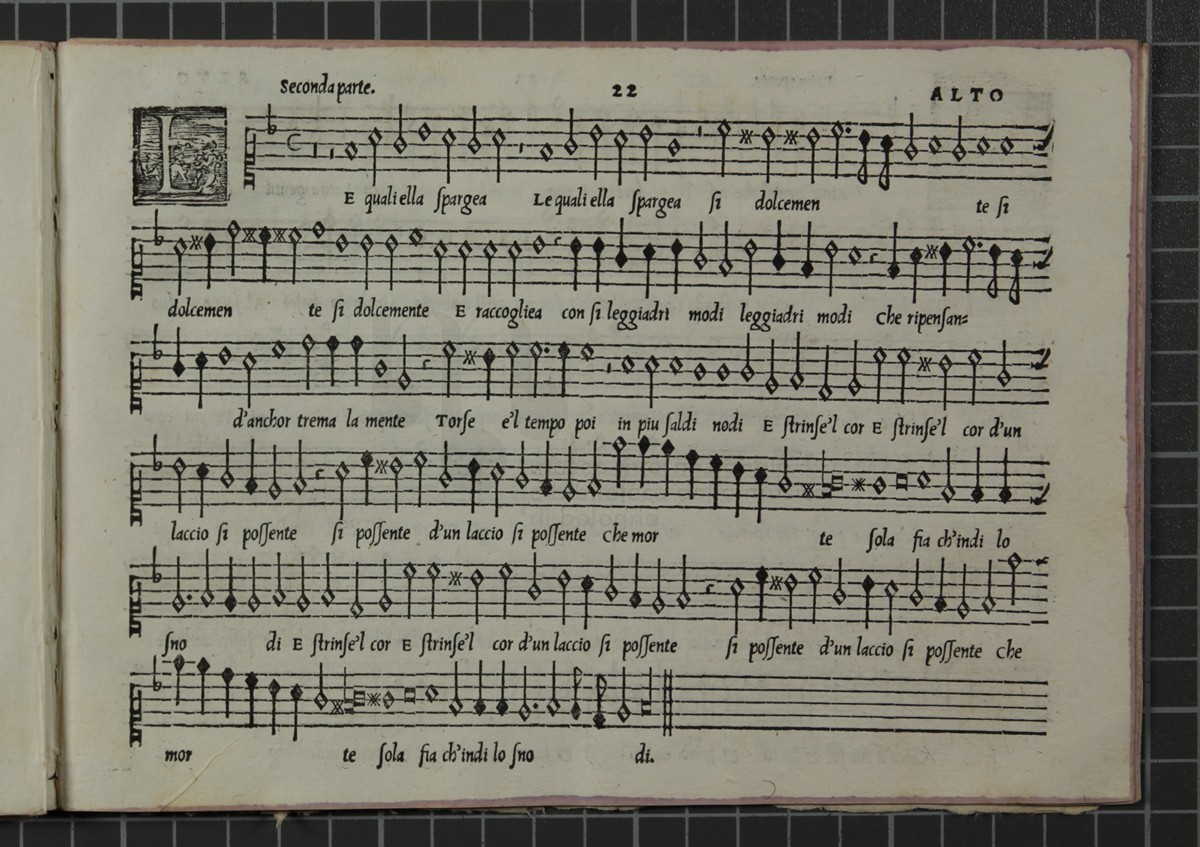 Seconda parte. 22 ALTO
LE quali ella ſpargea Le quali ella ſpargea ſi dolcemen te ſi
dolcemen te ſi dolcemente E raccogliea con ſi leggiadri modi leggiadri modi Che ripenſan=
d'anchor trema la mente Torſe e'l tempo poi in piu ſaldi nodi E ſtrinſe'l cor E ſtrinſe'l cor d'un
laccio ſi poſſente ſi poſſente d'un laccio ſi poſſente Che mor te ſola fia ch'indi lo
ſno di E ſtrinſe'l cor E ſtrinſe'l cor d'un laccio ſi poſſente ſi poſſente d'un laccio ſi poſſente Che
mor te ſola fia ch'indi lo ſno di.